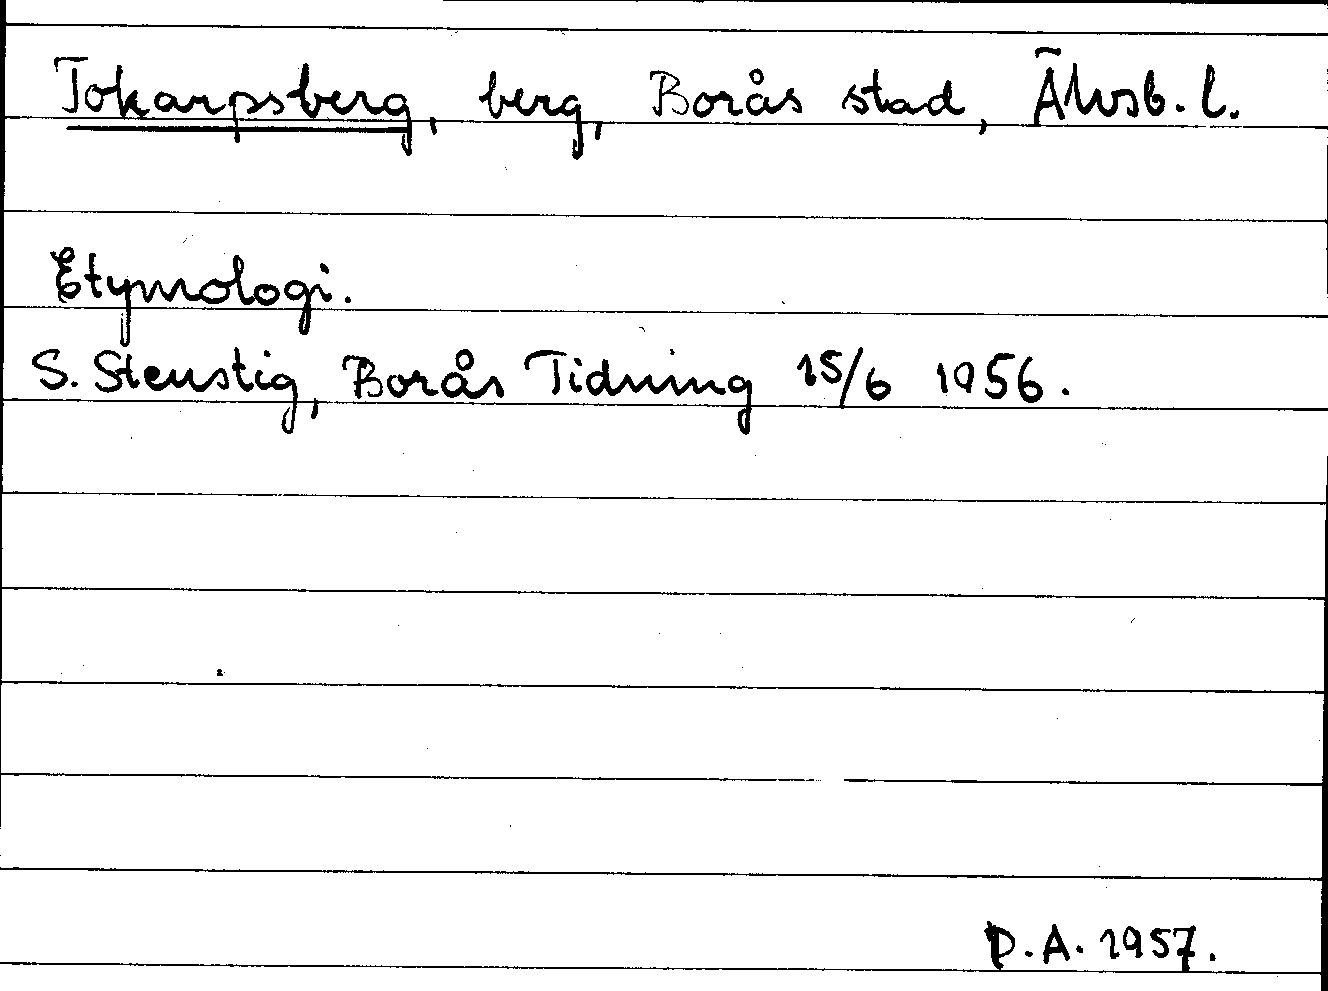 Tokarpsberg, berg, Borås stad, Älvsb. l.
Etymologi.
S. Stenstig, Borås Tidning 15/6 1956.
P.A. 1957.